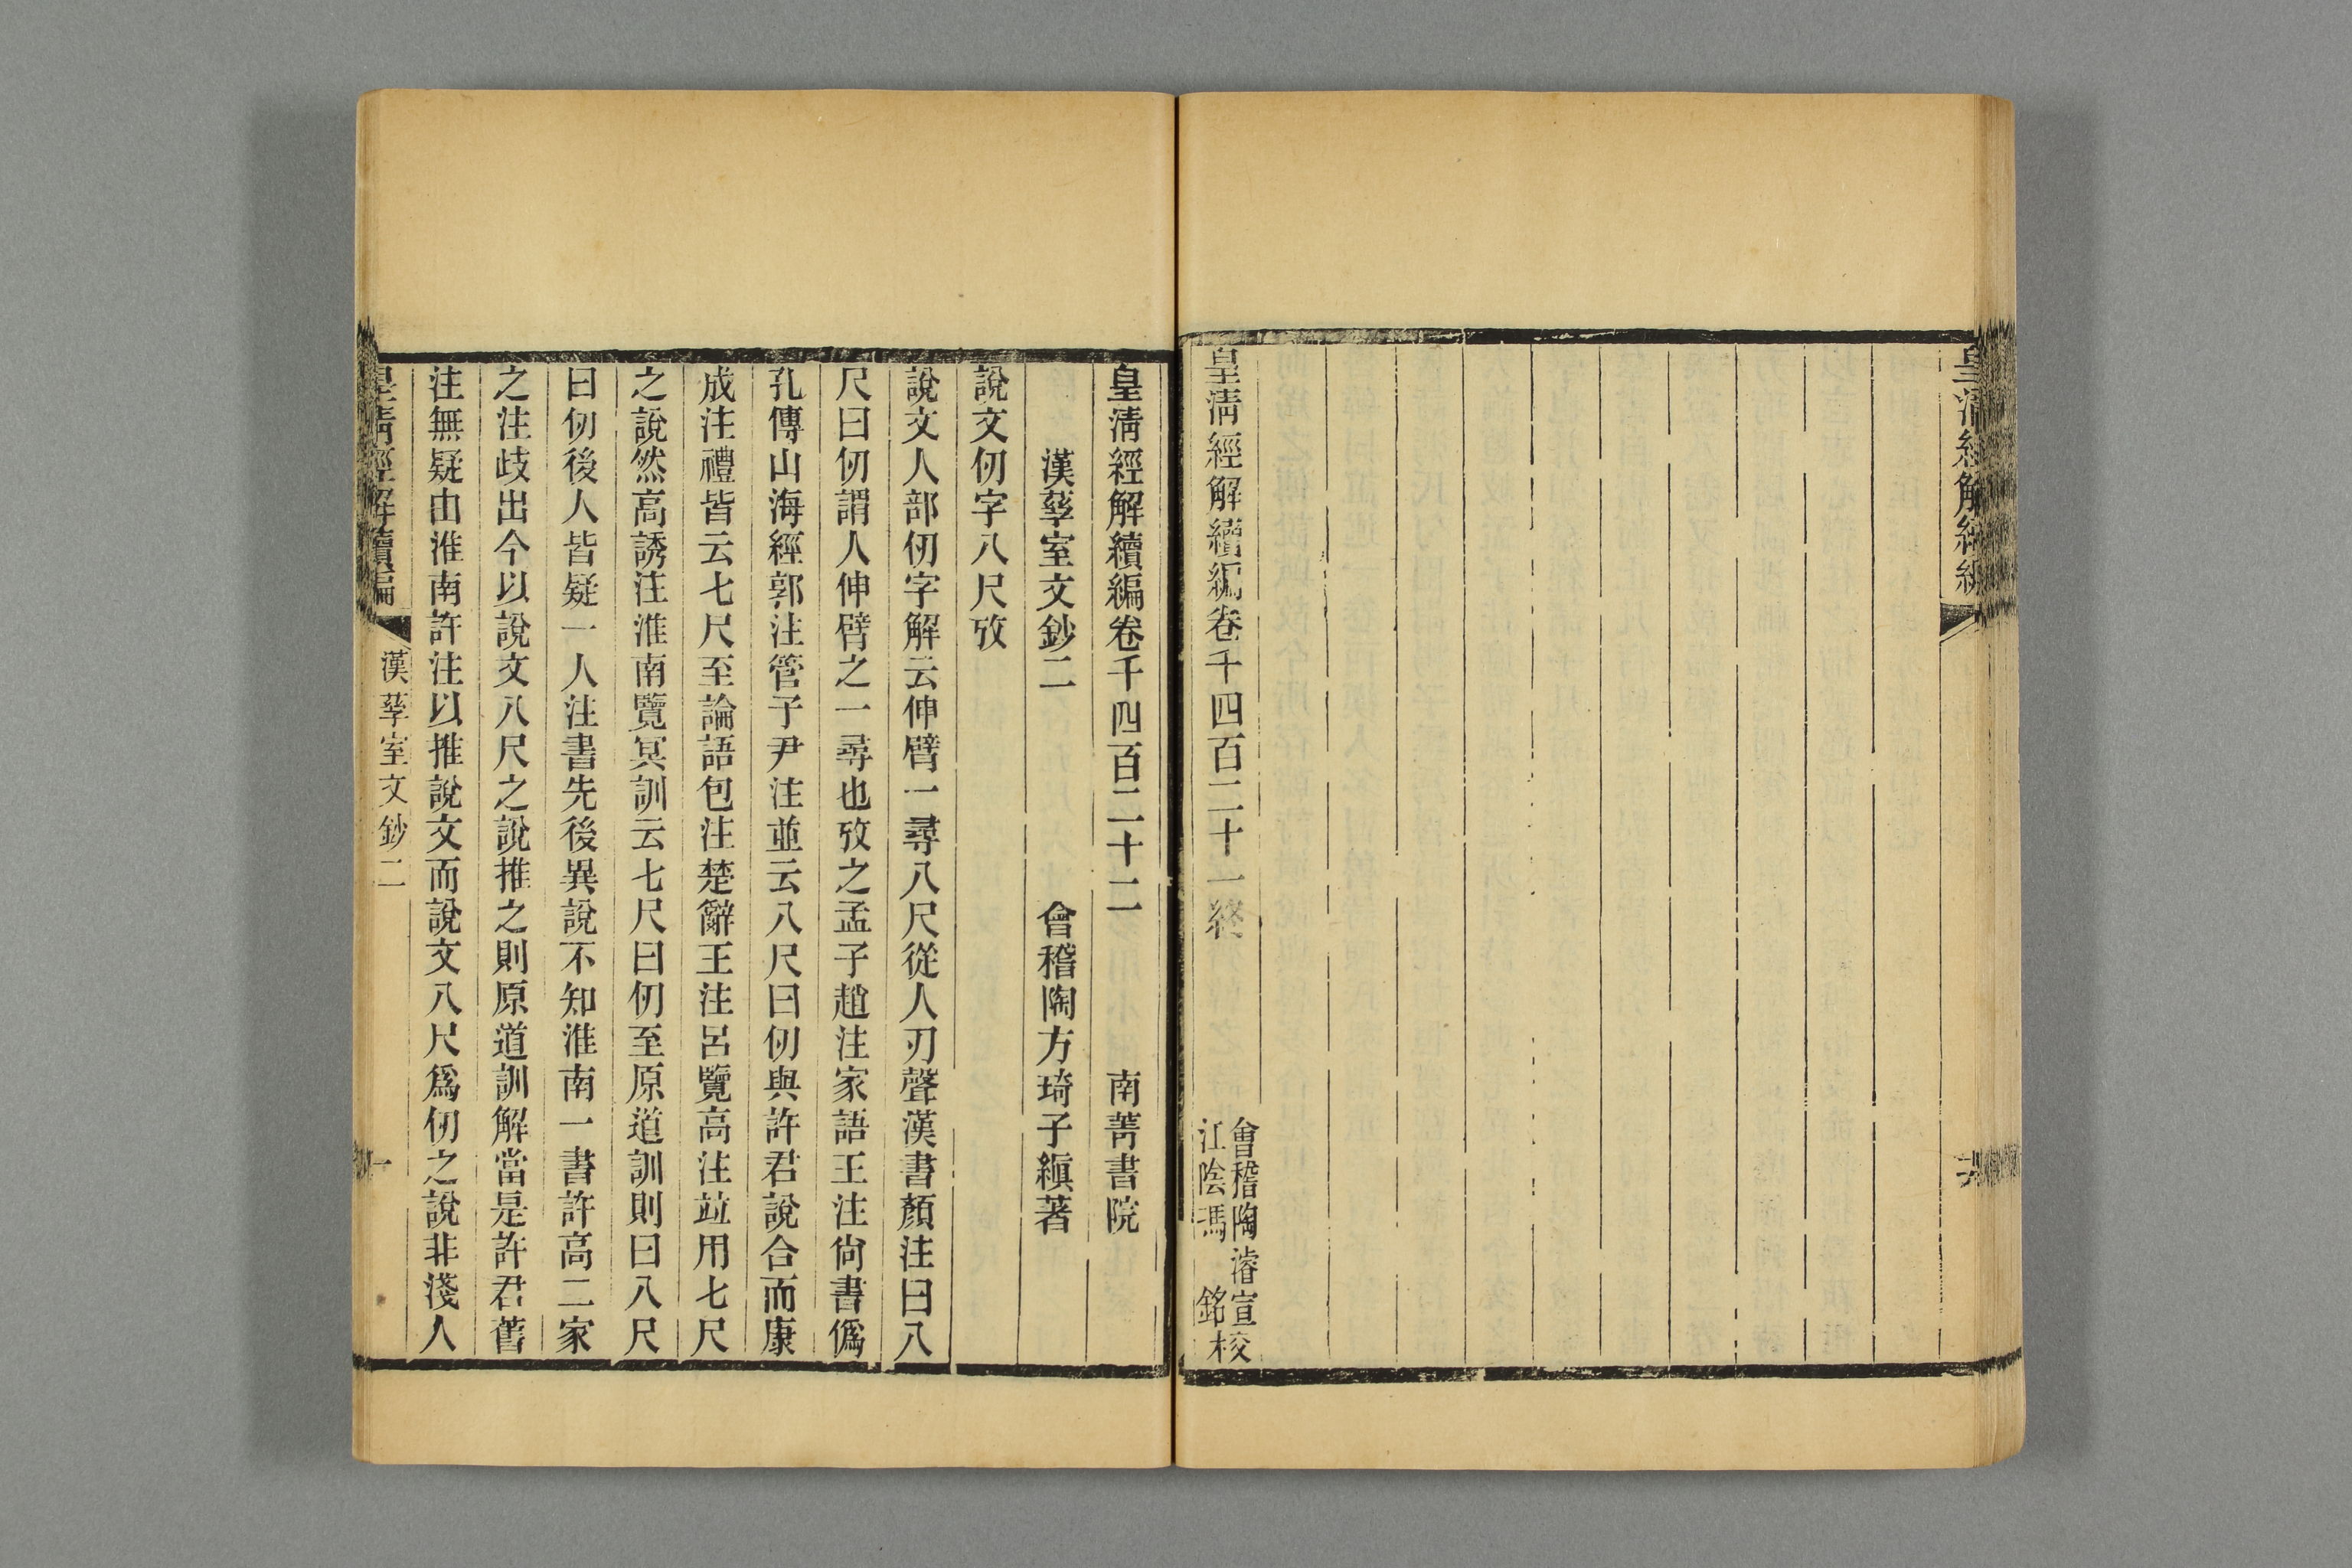 皇清經解續編
皇清經解續編卷千四百二十一終
會稽陶濬宣
江陰馮　銘校
皇清經解續編卷千四百二十二　南菁書院
漢孳室文鈔二　會稽陶方琦子縝著
說文仞字八尺攷
說文人部仞字解云伸臂一尋八尺從人刃聲漢書顏注曰八
尺曰仞謂人伸臂之一尋也攷之孟子趙注家語王注尙書僞
孔傳山海經郭注管子尹注並云八尺曰仞與許君說合而康
成注禮皆云七尺至論語包注楚辭王注呂覽高注竝用七尺
之說然高誘注淮南覽冥訓云七尺曰仞至原道訓則曰八尺
曰仞後人皆疑一人注書先後異說不知淮南一書許高二家
之注歧出今以說文八尺之說推之則原道訓解當是許君舊
注無疑由淮南許注以推說文而說文八尺爲仞之說非淺人
皇清經解續編　漢孳室文鈔二　一